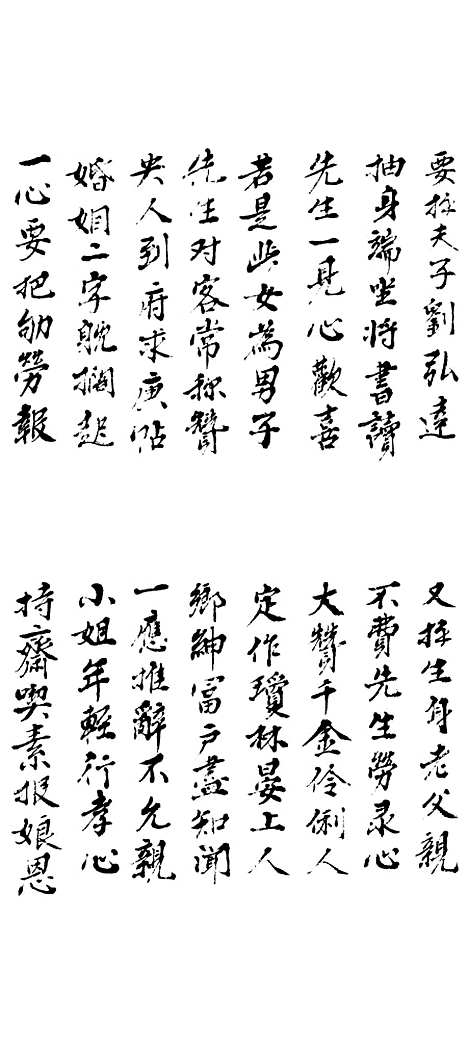 要拝夫子劉弘達
又拝生身老父親
抽身端坐將書讀
不費先生勞录心
先生一見心歡喜
大贊千金伶俐人
若是此女為男子
定作瓊林晏上人
先生对客常称贊
鄉紳冨户盡知聞
央人到府求庚帖
一應推辭不允親
婚姻二字躭擱起
小姐年輕行孝心
一心要把劬勞報
持齋喫素报娘恩